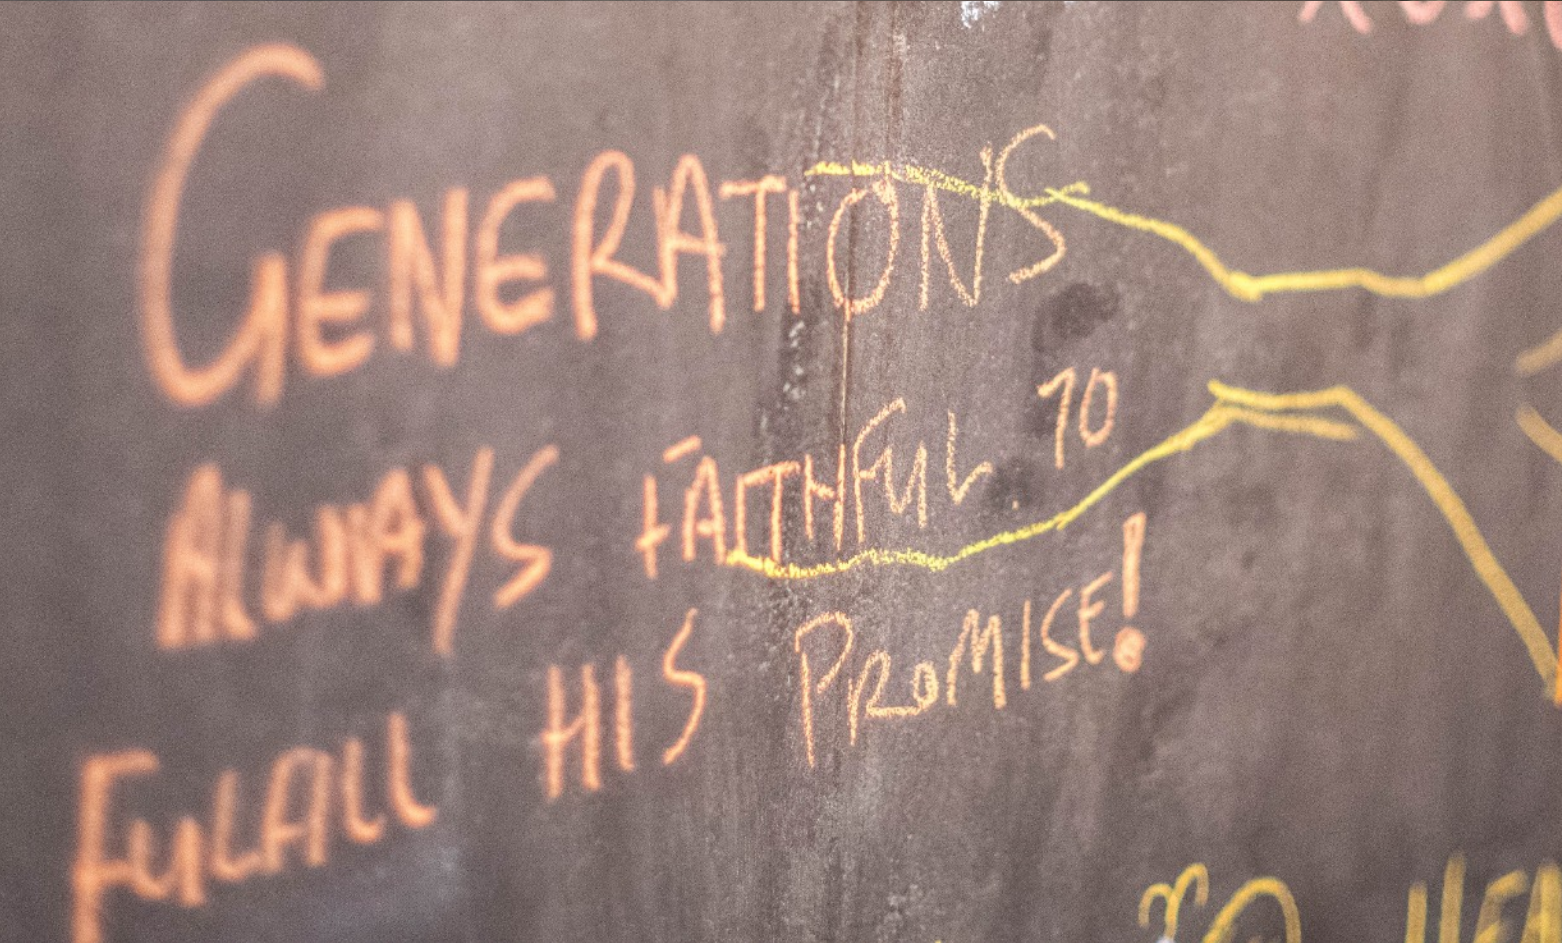 GENERATIONS
ALWAYS FAITHFUL TO
FULALL HIS PROMISE!